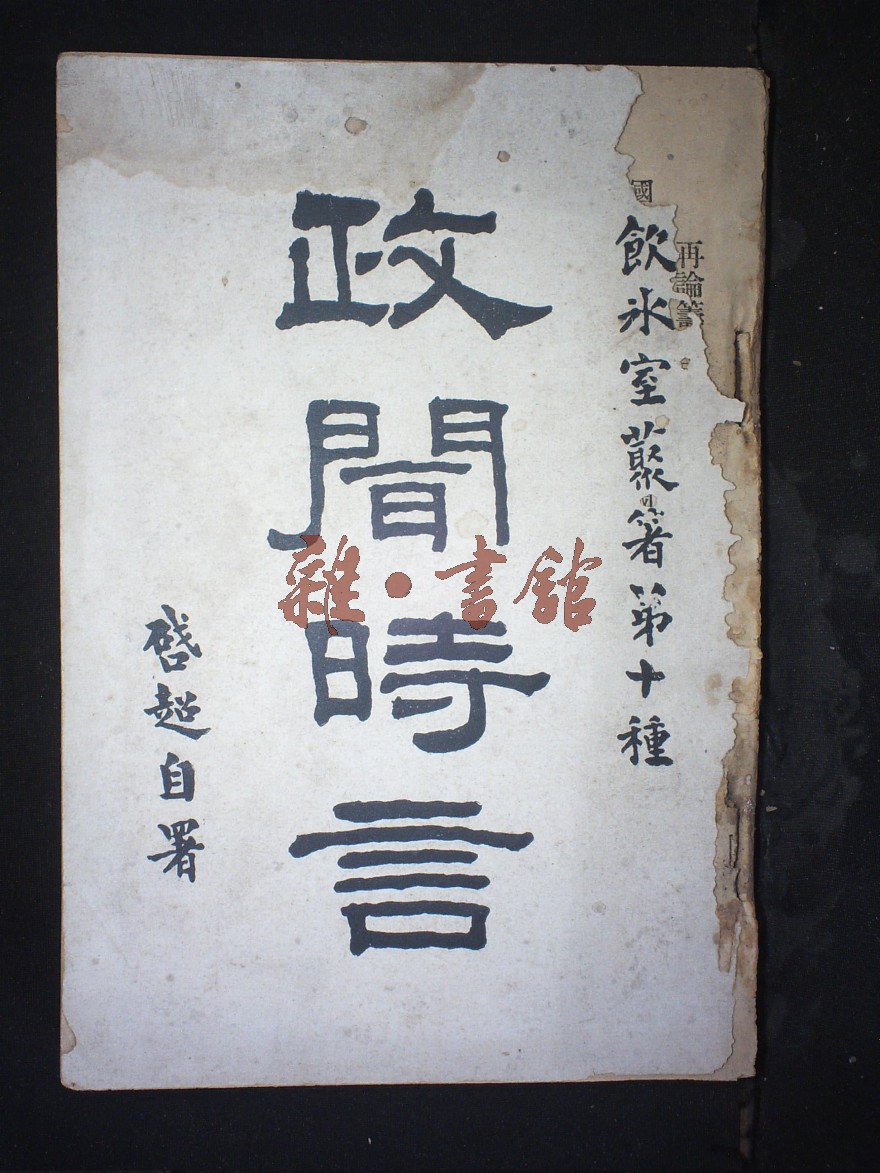 國
再論籌
飲氷室藂箸第十種
政聞時言
啓超自署
雜•書館